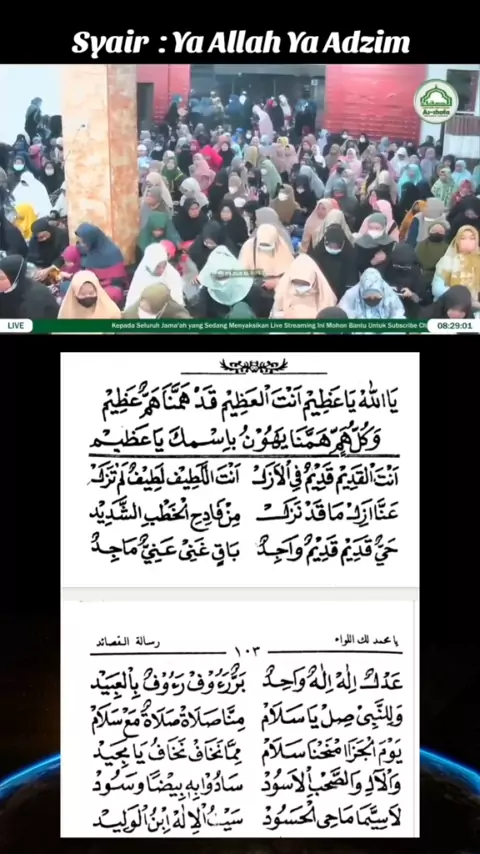 Syair : Ya Allah Ya Adzim
As-shofa
LIVE
Kepada Seluruh Jama'ah yang Sedang Menyaksikan Live Streaming Ini Mohon Bantu Untuk Subscribe
08:29:01
يَا اَللهُ يَا عَظِيْمُ اَنْتَ الْعَظِيْمُ قَدْ هَمَّنَا هَمٌّ عَظِيْمُ
وَكُلُّ هَمٍّ هَمَّنَا يَهُوْنُ بِاسْمِكَ يَا عَظِيْمُ
اَنْتَ الْقَدِيْمُ قَدِيْمٌ فِى الْاَزَلْ اَنْتَ اللَّطِيْفُ لَطِيْفٌ لَمْ تَزَلْ
عَنَّا اَزِلْ مَا قَدْ نَزَلْ مِنْ فَادِحِ الْخَطْبِ الشَّدِيْدِ
حَيٌّ قَدِيْمٌ قَدِيْمٌ وَاجِدٌ بَاقٍ غَنِىٌّ غَنِيٌّ مَاجِدٌ
يا محمد لك اللواء
١٠٣
رسالة القصائد
عَدْلٌ اِلٰهٌ اِلٰهٌ وَاحِدٌ بَرٌّ رَءُوْفٌ رَءُوْفٌ بِالْعَبِيْدِ
وَلِلنَّبِيِّ صِلْ يَا سَلَامْ مِنَّا صَلَاةً صَلَاةً مَعَ سَلَامْ
يَوْمَ الْجَزَا امْنَحْنَا سَلَامْ مِمَّا نَخَافْ نَخَافْ يَا مَجِيْدْ
وَالْآلِ وَالصَّحْبِ الْاُسُوْدْ سَادُوْا بِهِ بِيْضًا وَسُوْدْ
لَاسِيَّمَا مَاحِى الْحَسُوْدْ سَيْفُ الْاِلٰهِ ابْنُ الْوَلِيْدْ